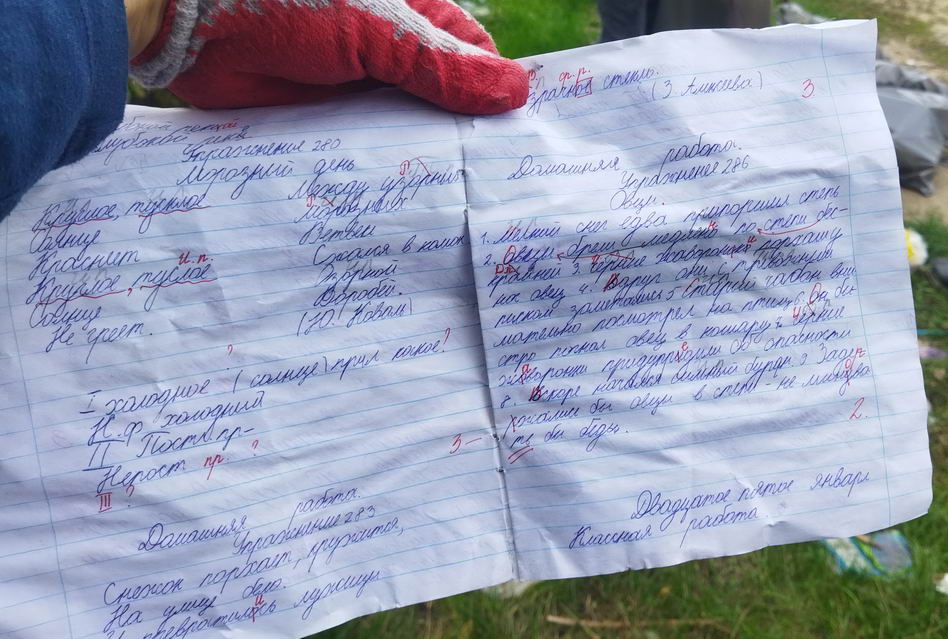 Упражнение 280
Морозный день
Круглое, тусклое
Солнце
Краснеет
и.п.
Круглое, туслое
Солнце
Не греет.
Между узорных
Морозных
Ветвей
Сжался в комок
Зоркой
Воробей.
(Ю. Коваль)
?
I холодное (солнце) прил какое?
Н.ф. холодный
II Пост. пр-
Непост пр. ?
III ?
3-
Домашняя работа.
Упражнение 283
Снежок порхает, кружится,
На улице бело.
И превратились лужицы
ф. р.
зрачное стекло.
(З. Алексеева)
3
Домашняя работа.
Упражнение 286
Овцы.
1. Мелкий снег едва припорошил степь
2. Овцы брели медлено по степи бес-
крайней 3. Чёрные жаворонки порхали
4. Вдруг они с тревожным
писком заметались 5 Старый чабан вни
мательно посмотрел на птиц 6. Он бы
стро погнал овец в кошару 7. Чёрные
жаворонки придупредили об опасности
8. Вскоре начался сильный буран. 9 Задер
жались бы овцы в степи - не миновать
бы беды.
2.
Двадцатое пятое января
Классная работа.